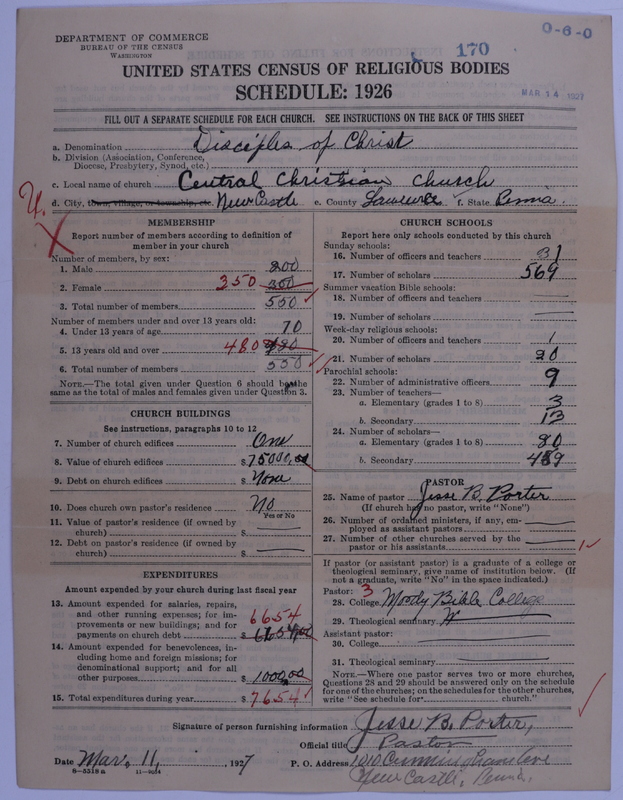 0-6-0
170
MAR 14 1927
DEPARTMENT OF COMMERCE
BUREAU OF THE CENSUS
WASHINGTON
UNITED STATES CENSUS OF RELIGIOUS BODIES
SCHEDULE: 1926
FILL OUT A SEPARATE SCHEDULE FOR EACH CHURCH. SEE INSTRUCTIONS ON THE BACK OF THIS SHEET
a. Denomination Disciples of Christ
b. Division (Association, Conference,
Diocese, Presbytery, Synod, etc.)
c. Local name of church Central Christian Church
d. City, town, village, or township, etc. New Castle e. County Lawrence f. State Penna.
MEMBERSHIP
Report number of members according to definition of
member in your church
Number of members, by sex:
1. Male 200
2. Female 350 300
3. Total number of members 550
Number of members under and over 13 years old:
4. Under 13 years of age 70
5. 13 years old and over 480
6. Total number of members 550
NOTE.—The total given under Question 6 should be the
same as the total of males and females given under Question 3.
CHURCH BUILDINGS
See instructions, paragraphs 10 to 12
7. Number of church edifices One
8. Value of church edifices $75000.00
9. Debt on church edifices $None
10. Does church own pastor's residence No
Yes or No
11. Value of pastor's residence (if owned by
church) $
12. Debt on pastor's residence (if owned by
church) $
EXPENDITURES
Amount expended by your church during last fiscal year
13. Amount expended for salaries, repairs,
and other running expenses; for im-
provements or new buildings; and for 6654
payments on church debt $ 6654.00
14. Amount expended for benevolences, in-
cluding home and foreign missions; for
denominational support; and for all
other purposes $ 1000.00
15. Total expenditures during year $ 7654
CHURCH SCHOOLS
Report here only schools conducted by this church
Sunday schools:
16. Number of officers and teachers 31
17. Number of scholars 569
Summer vacation Bible schools:
18. Number of officers and teachers
19. Number of scholars
Week-day religious schools:
20. Number of officers and teachers 1
21. Number of scholars 20
Parochial schools:
22. Number of administrative officers 9
23. Number of teachers—
a. Elementary (grades 1 to 8) 3
b. Secondary 13
24. Number of scholars—
a. Elementary (grades 1 to 8) 80
b. Secondary 489
PASTOR
25. Name of pastor Jesse B. Porter
(If church has no pastor, write "None")
26. Number of ordained ministers, if any, em-
ployed as assistant pastors
27. Number of other churches served by the
pastor or his assistants 1
If pastor (or assistant pastor) is a graduate of a college or
theological seminary, give name of institution below. (If
not a graduate, write "No" in the space indicated.)
Pastor: 3
28. College Moody Bible College
29. Theological seminary
Assistant pastor:
30. College
31. Theological seminary
NOTE.—Where one pastor serves two or more churches,
Questions 28 and 29 should be answered only on the schedule
for one of the churches; on the schedules for the other churches,
write "See schedule for church."
Signature of person furnishing information Jesse B. Porter,
Official title Pastor
Date Mar. 11, 1927 P. O. Address 1010 Cunningham Ave
8—5318 a 11—9024 New Castle, Penna.